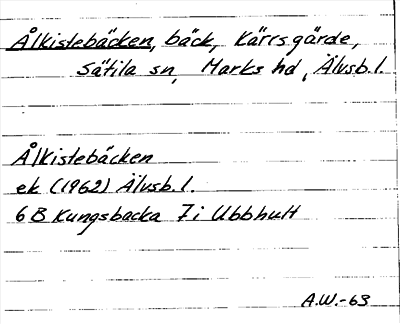 Ålkistebäcken, bäck, Kärrsgärde,
Sätila sn, Marks hd, Älvsb.l.
Ålkistebäcken
ek (1962) Älvsb.l.
6B Kungsbacka 7i Ubbhult
A.W.-63